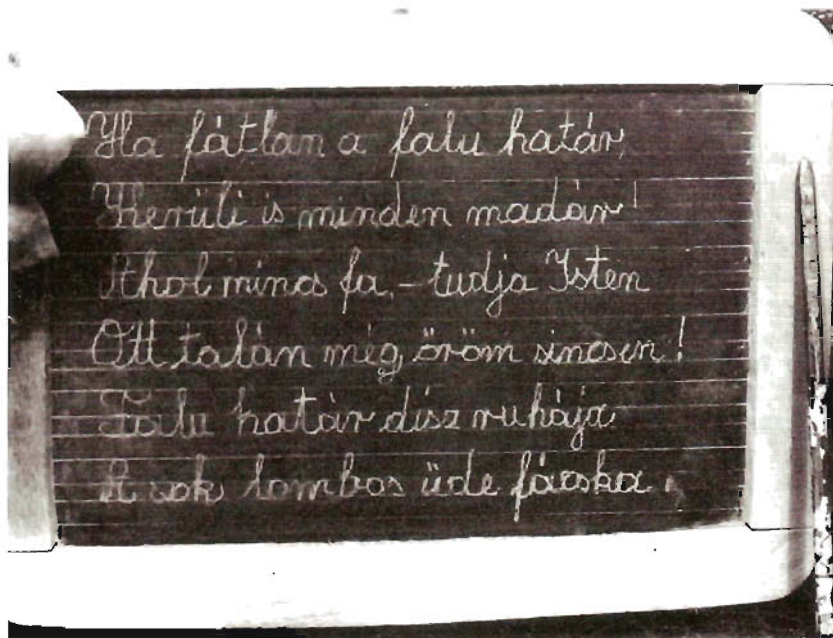 Ha fátlan a falu határ,
Kerüli is minden madár!
Ahol nincs fa, – tudja Isten
Ott talán még öröm sincsen!
Falu határ dísz ruhája
A sok lombos üde fácska.